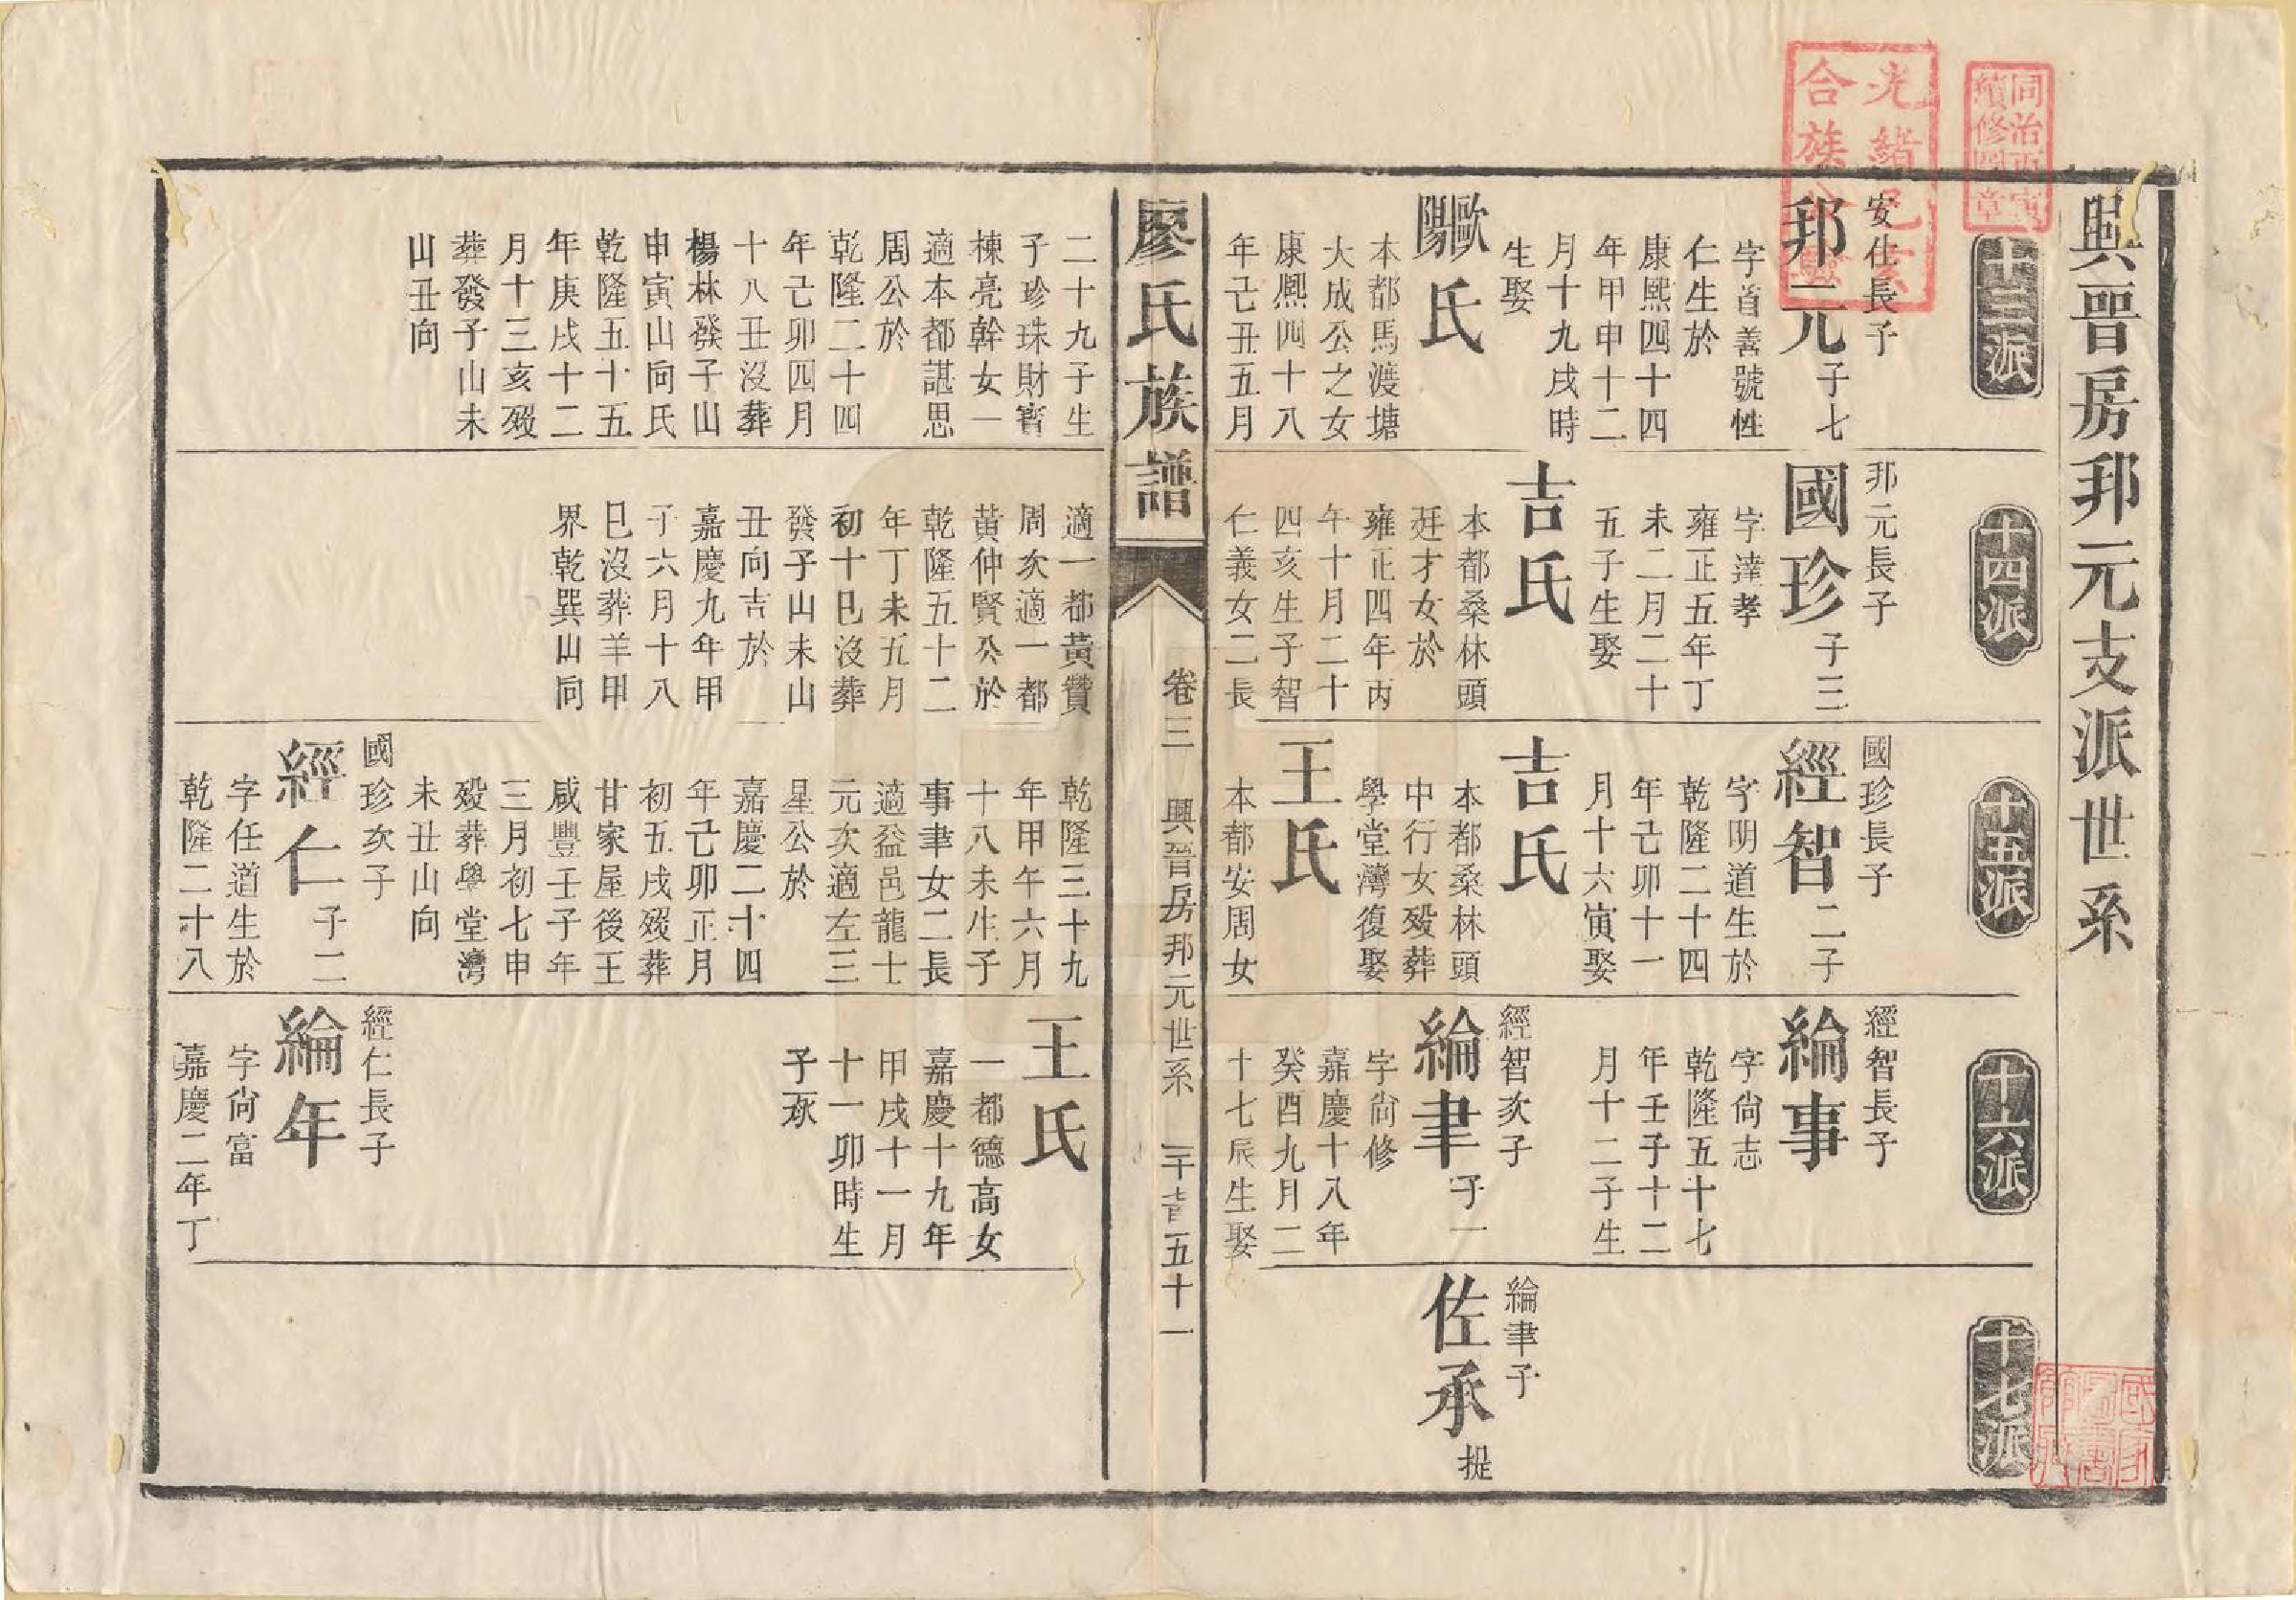 興晉房邦元支派世系
十三派
安仕長子
邦元 子七
字首善號性
仁生於
康熙四十四
年甲申十二
月十九戌時
生娶
歐陽氏
本都馬渡塘
大成公之女
康熙四十八
年己丑五月
二十九子生
子珍珠財寳
棟亮幹女一
適本都諶思
周公於
乾隆二十四
年己卯四月
十八丑沒葬
楊林發子山
申寅山向氏
乾隆五十五
年庚戌十二
月十三亥歿
葬發子山未
山丑向
十四派
邦元長子
國珍 子三
字達孝
雍正五年丁
未二月二十
五子生娶
吉氏
本都桑林頭
廷才女於
雍正四年丙
午十月二十
四亥生子智
仁義女二長
適一都黃贊
周次適一都
黃仲賢公於
乾隆五十二
年丁未五月
初十巳沒葬
發子山未山
丑向吉於
嘉慶九年甲
子六月十八
巳沒葬羊甲
界乾巽山向
十五派
國珍長子
經智 二子
字明道生於
乾隆二十四
年己卯十一
月十六寅娶
吉氏
本都桑林頭
中行女歿葬
學堂灣復娶
王氏
本都安周女
乾隆三十九
年甲午六月
十八未生子
事聿女二長
適益邑龍士
元次適左三
星公於
嘉慶二十四
年己卯正月
初五戌歿葬
甘家屋後王
咸豐壬子年
三月初七申
歿葬學堂灣
未丑山向
國珍次子
經仁 子二
字任道生於
乾隆二十八
十六派
經智長子
綸事
字尙志
乾隆五十七
年壬子十二
月十二子生
經智次子
綸聿 子一
字尙修
嘉慶十八年
癸酉九月二
十七辰生娶
王氏
一都德高女
嘉慶十九年
甲戌十一月
十一卯時生
子承
經仁長子
綸年
字尙富
嘉慶二年丁
十七派
綸聿子
佐承 提
廖氏族譜
卷三 興晉房邦元世系
光緒
合族
同治
續修圖章